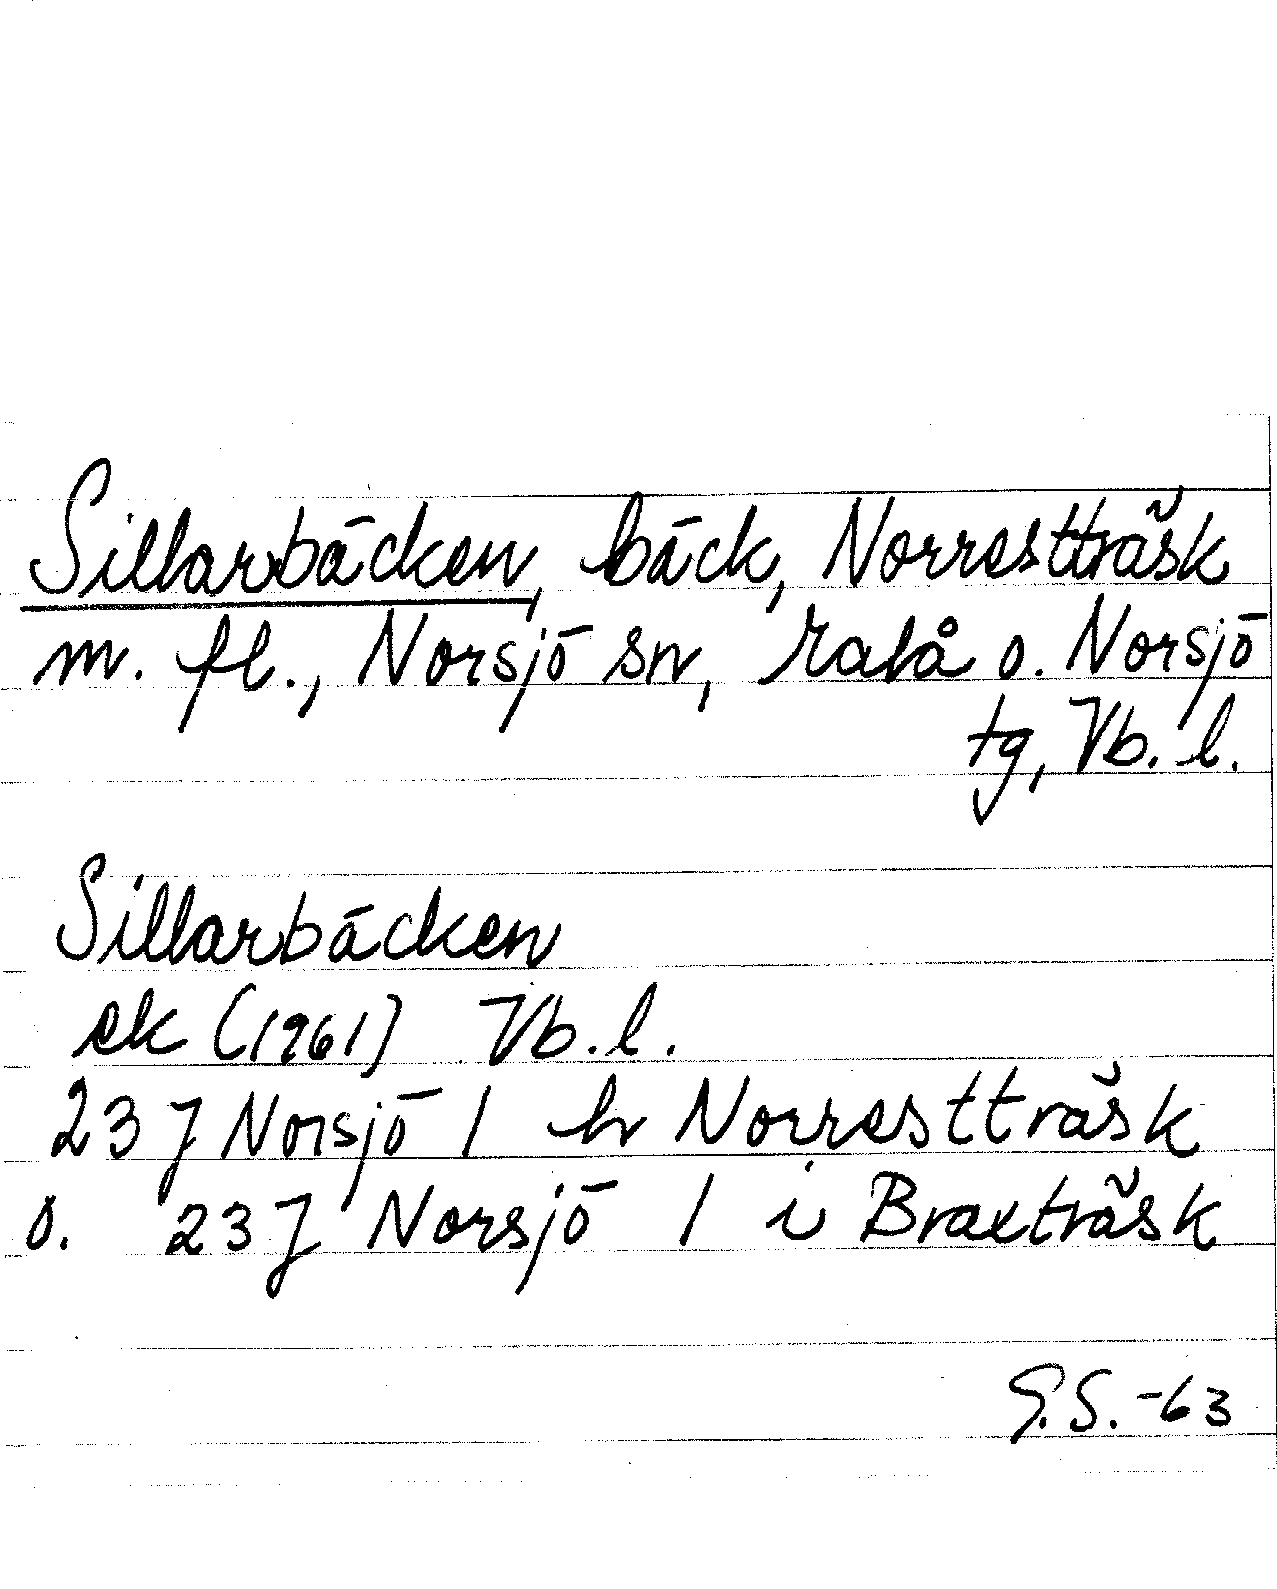 Sillarbäcken, bäck, Norresttträsk
m. fl., Norsjö sn, Malå o. Norsjö
tg, Vb. l.
Sillarbäcken
ek (1961) Vb. l.
23 J Norsjö 1 h Norrestträsk
o. 23 J Norsjö 1 i Braxträsk
G.S. -63